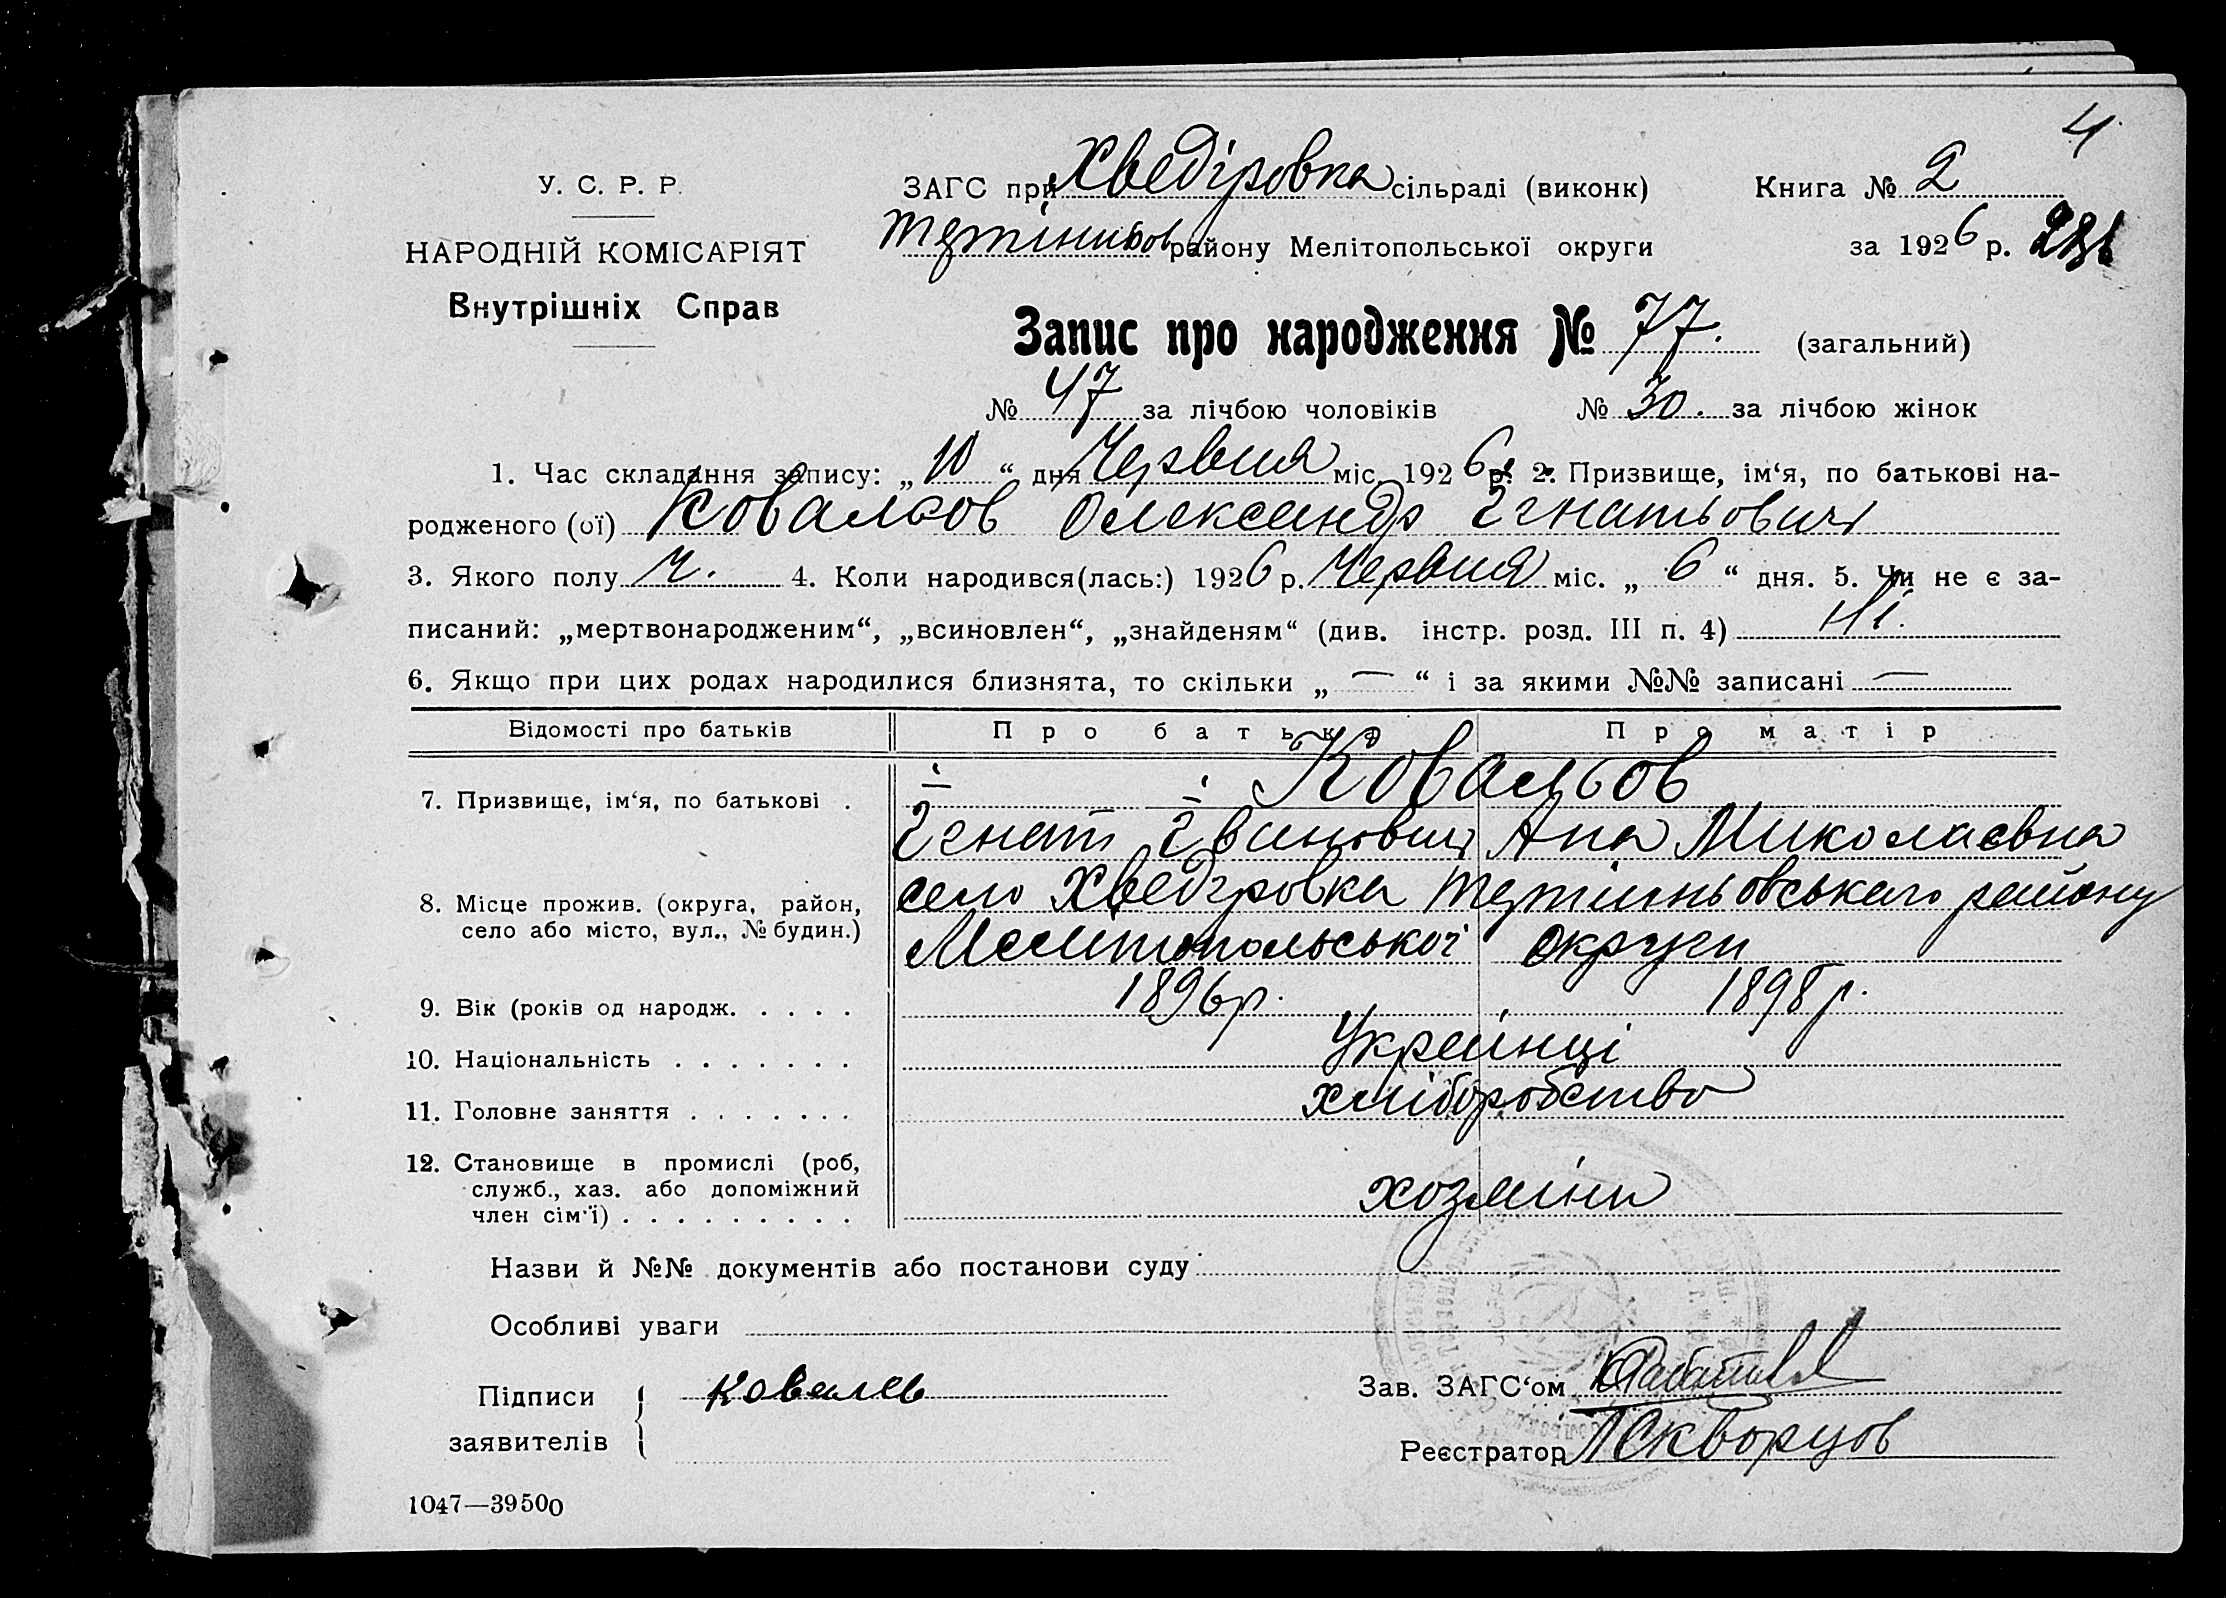 4
У. С. Р. Р.
НАРОДНІЙ КОМІСАРІЯТ
Внутрішніх Справ
ЗАГС при Хведіровка сільраді (виконк)
Книга № 2
району Мелітопольської округи
за 1926 р.
Запис про народження № 77. (загальний)
№ 47 за лічбою чоловіків № 30. за лічбою жінок
1. Час складання запису: „ 10 “ дня Червня міс. 1926 р. 2. Призвище, ім‘я, по батькові на-
родженого (ої) Ковальов Олександр Ігнатьович
3. Якого полу ч. 4. Коли народився(лась:) 1926 р. Червня міс. „ 6 “ дня. 5. Чи не є за-
писаний: „мертвонародженим“, „всиновлен“, „знайденям“ (див. інстр. розд. III п. 4) Ні.
6. Якщо при цих родах народилися близнята, то скільки „ — “ і за якими №№ записані —
Відомості про батьків Про батька Про матір
7. Призвище, ім‘я, по батькові . Ковальов
Ігнат Іванович Ана Миколаєвна
8. Місце прожив. (округа, район, село Хведіровка району
село або місто, вул., № будин.) Мелітопольської округи
9. Вік (років од народж. . . . . 1896р. 1898р.
10. Національність . . . . . . . Украінці
11. Головне заняття . . . . . . . хліборобство
12. Становище в промислі (роб,
служб., хаз. або допоміжний
член сім‘ї) . . . . . . . . . хозяіни
Назви й №№ документів або постанови суду
Особливі уваги
Підписи
заявителів
Ковалев
Зав. ЗАГС‘ом
Реєстратор Скворцов
1047—39500